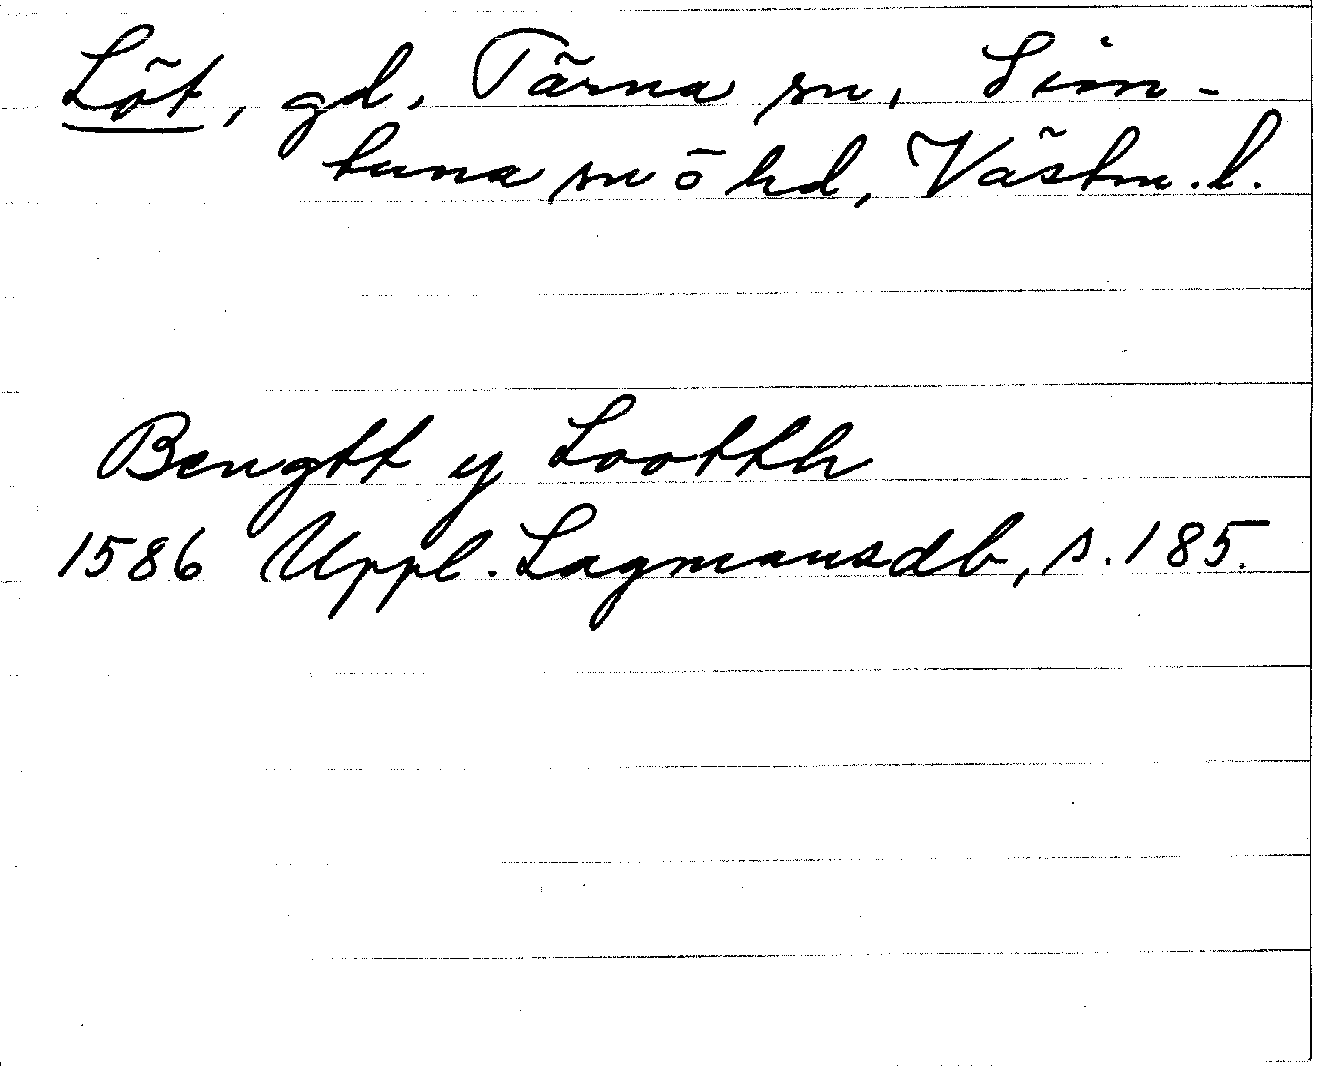 Löt, gd, Tärna sn, Sim-
tuna sn ö hd, Västm. l.
Bengtt y Lootth
1586 Uppl. Lagmansdb, s. 185.